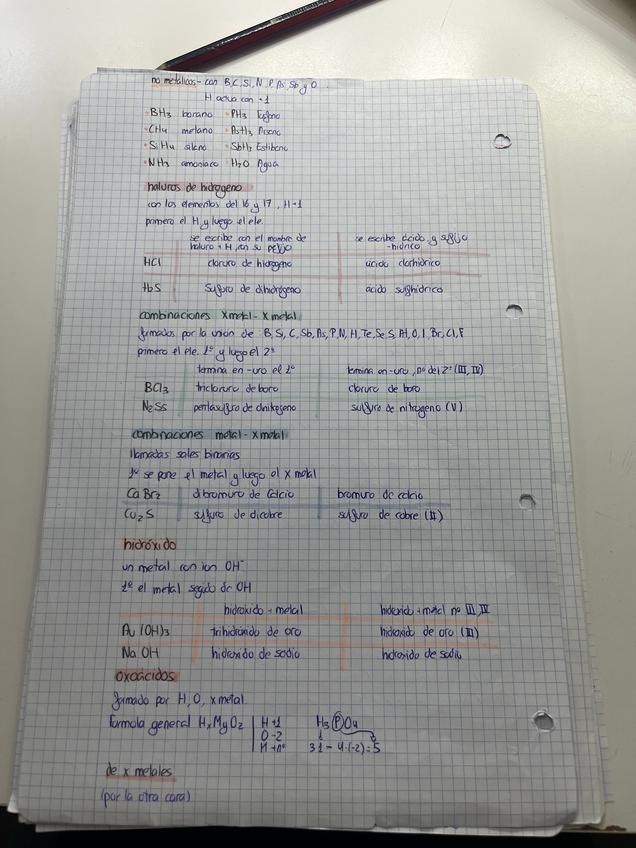 no metálicos - con B, C, Si, N, P, As, Sb y O.
H actua con +1
· BH3 borano · PH3 Fosfano
· CH4 metano · AsH3 Arsano
· SiH4 silano · SbH3 Estibano
· NH3 amoniaco · H2O Agua
haluros de hidrogeno
con los elementos del 16 y 17, H+1
primero el H y luego el ele.
se escribe con el nombre de haluro + H, con su prefijo
se escribe ácido y sufijo -hídrico
HCl cloruro de hidrogeno ácido clorhídrico
H2S sulfuro de dihidrogeno acido sulfhídrico
combinaciones xmetal - xmetal
formados por la unión de: B, Si, C, Sb, As, P, N, H, Te, Se, S, At, O, I, Br, Cl, F
primero el ele. 1º y luego el 2º
termina en -uro el 1º termina en -uro, nº del 2º (III, IV)
BCl3 tricloruro de boro cloruro de boro
N2S5 pentasulfuro de dinitrogeno sulfuro de nitrogeno (V)
combinaciones metal - xmetal
llamadas sales binarias
1º se pone el metal y luego el x metal
CaBr2 dibromuro de calcio bromuro de calcio
Cu2S sulfuro de dicobre sulfuro de cobre (II)
hidróxido
un metal con ion OH-
1º el metal seguido de OH
hidroxido + metal hidroxido + metal nº III, IV
Au(OH)3 trihidróxido de oro hidroxido de oro (III)
NaOH hidroxido de sodio hidroxido de sodio
oxoácidos
formado por H, O, x metal.
Formula general HxMyOz | H+1 H3(P)O4
O-2
M+nº 3·1 - 4·(-2) = 5
de x metales
(por la otra cara)